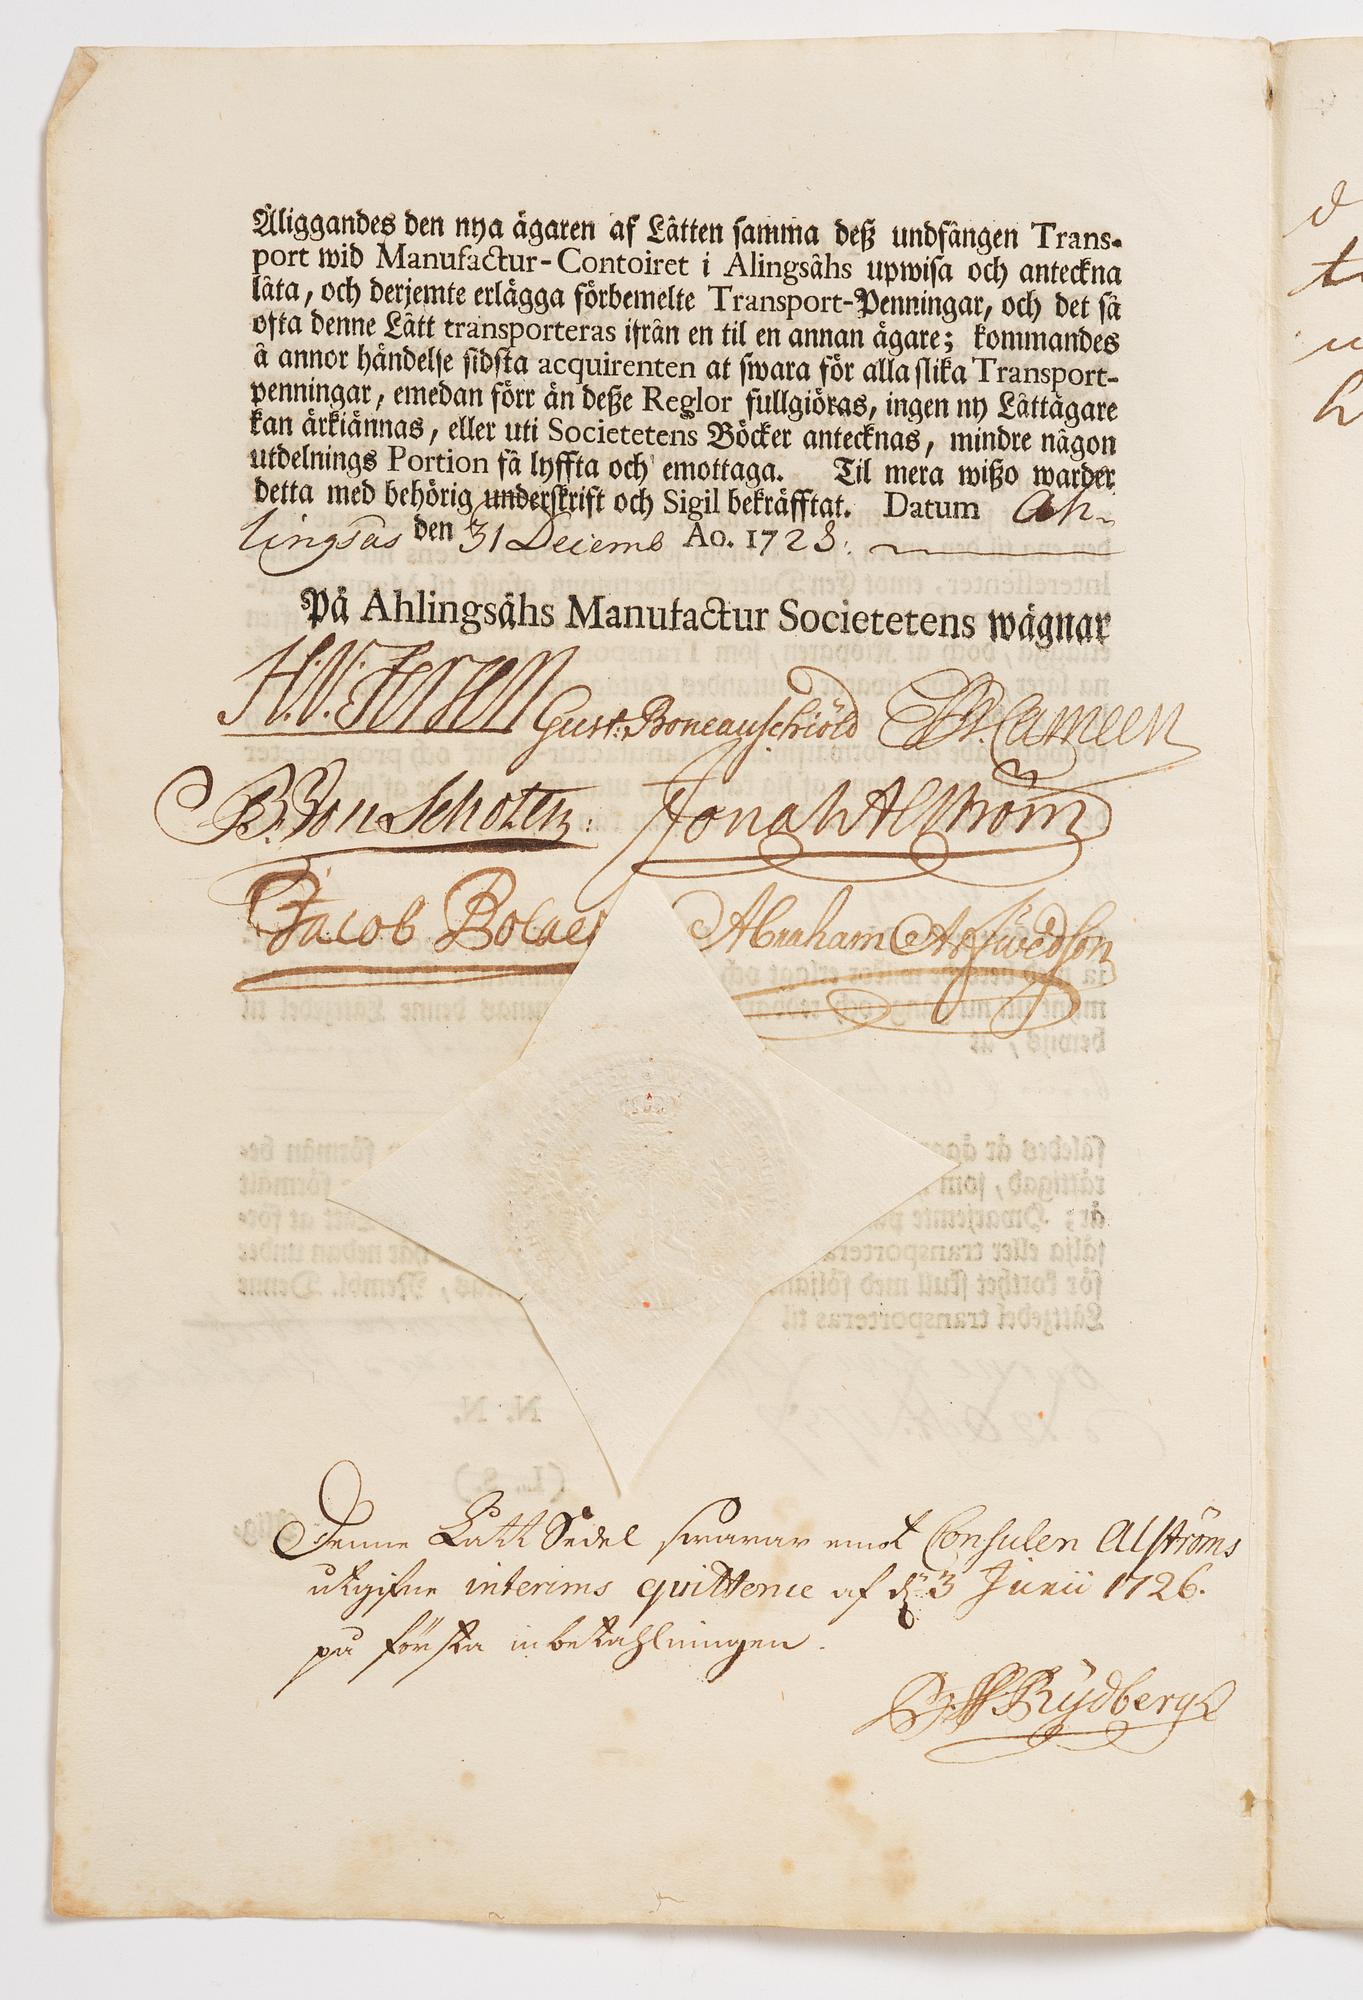 Åliggandes den nya ägaren af Låtten samma deß undfängen Trans-
port wid Manufactur-Contoiret i Alingsåhs upwisa och anteckna
låta, och derjemte erlägga förbemelte Transport-Penningar, och det så
ofta denne Lått transporteras ifrån en til en annan ägare; kommandes
å annor händelse sidsta acquirenten at swara för alla slika Transport-
penningar, emedan förr än deße Reglor fullgiöras, ingen ny Låttägare
kan ärkiännas, eller uti Societetens Böcker antecknas, mindre någon
utdelnings Portion få lyffta och emottaga. Til mera wißo warder
detta med behörig underskrift och Sigil bekräfftat. Datum Ah-
lingsås den 31 Decemb Ao. 1728.
På Ahlingsåhs Manufactur Societetens wägnar
H.V. Fersen Gust: Boneauschiöld
B. Von Schoten: Jonas Alström
Jacob Bolaei Abraham Arfwedson
Denne Lått Sedel swarar emot Consulen Alströms
utgifne interims quittence af d. 3 Junii 1726.
på första inbetahlningen.
Rydberg